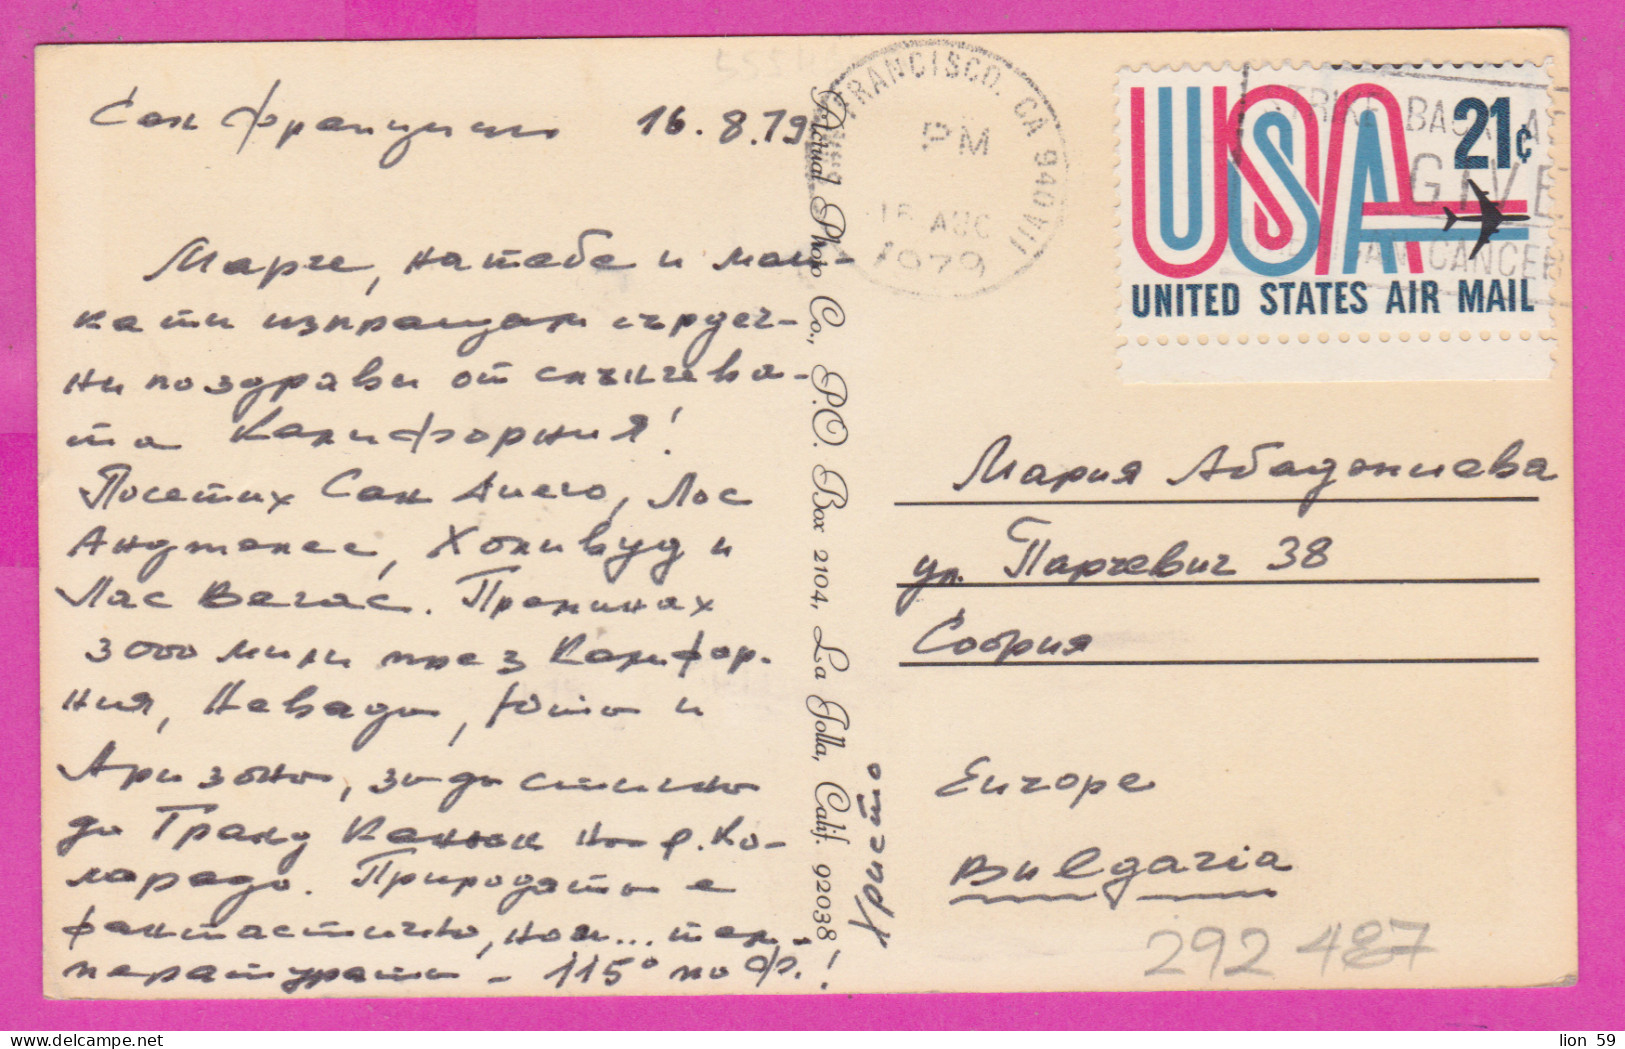 Сан Франциско 16.8.79
Марче, на тебе и май-
ка ти изпращам сърдеч-
ни поздрави от слънчева-
та Калифорния!
Посетих Сан Диего, Лос
Анджелес, Холивуд и
Лас Вегас. Преминах
3000 мили през Калифор-
ния, Невада, Юта и
Аризона, за да стигна
до Гранд Каньон на р. Ко-
лорадо. Природата е
фантастична, но и... тем-
пературата - 115° по Ф.!
Христо
Actual Photo Co., P.O. Box 2104, La Jolla, Calif. 92038
FRANCISCO. CA 940
PM
16 AUG
1979
STRIKE BACK A
GIVE
CANCER
USA 21c
UNITED STATES AIR MAIL
Мария Абаджиева
ул. Парчевич 38
София
Europe
Bulgaria
292487
lion 59